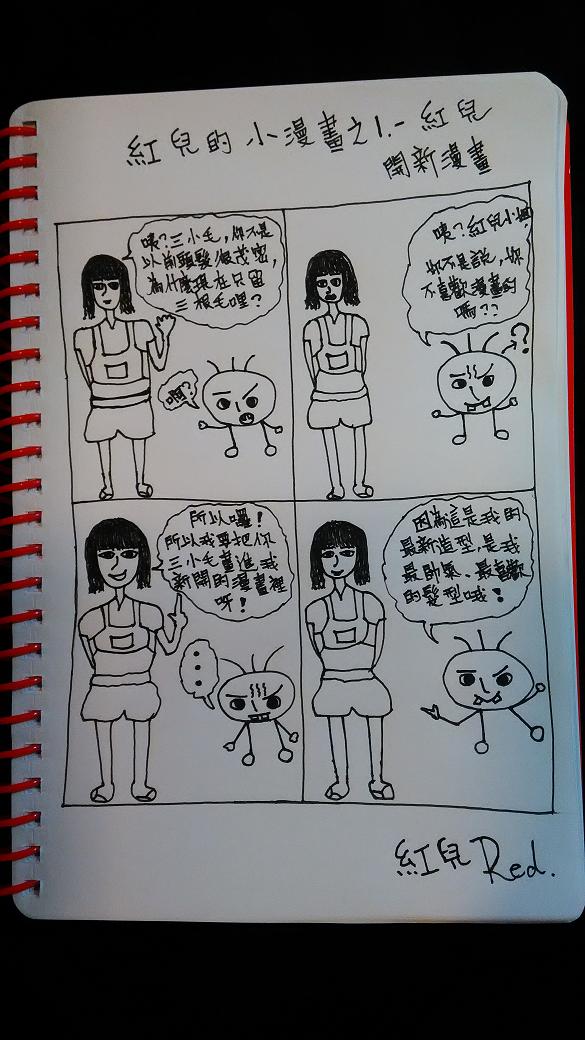 紅兒的小漫畫之1.-紅兒
開新漫畫
咦?三小毛,你不是
以前頭髮很茂密,
為什麼現在只留
三根毛哩?
啊?
咦?紅兒小姐,
你不是說,你
不喜歡漫畫的
嗎??
?
所以囉!
所以我要把你
三小毛畫進我
新開的漫畫裡
呀!
...
因為這是我的
最新造型,是我
最帥氣、最喜歡
的髮型哦!
紅兒 Red.